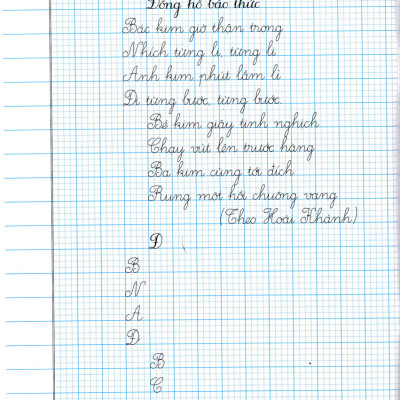 Đồng hồ báo thức
Bác kim giờ thận trọng
Nhích từng li, từng li
Anh kim phút lầm lì
Đi từng bước, từng bước.
Bé kim giây tinh nghịch
Chạy vút lên trước hàng
Ba kim cùng tới đích
Rung một hồi chuông vang
(Theo Hoài Khánh)
Đ
B
N
A
Đ
B
C